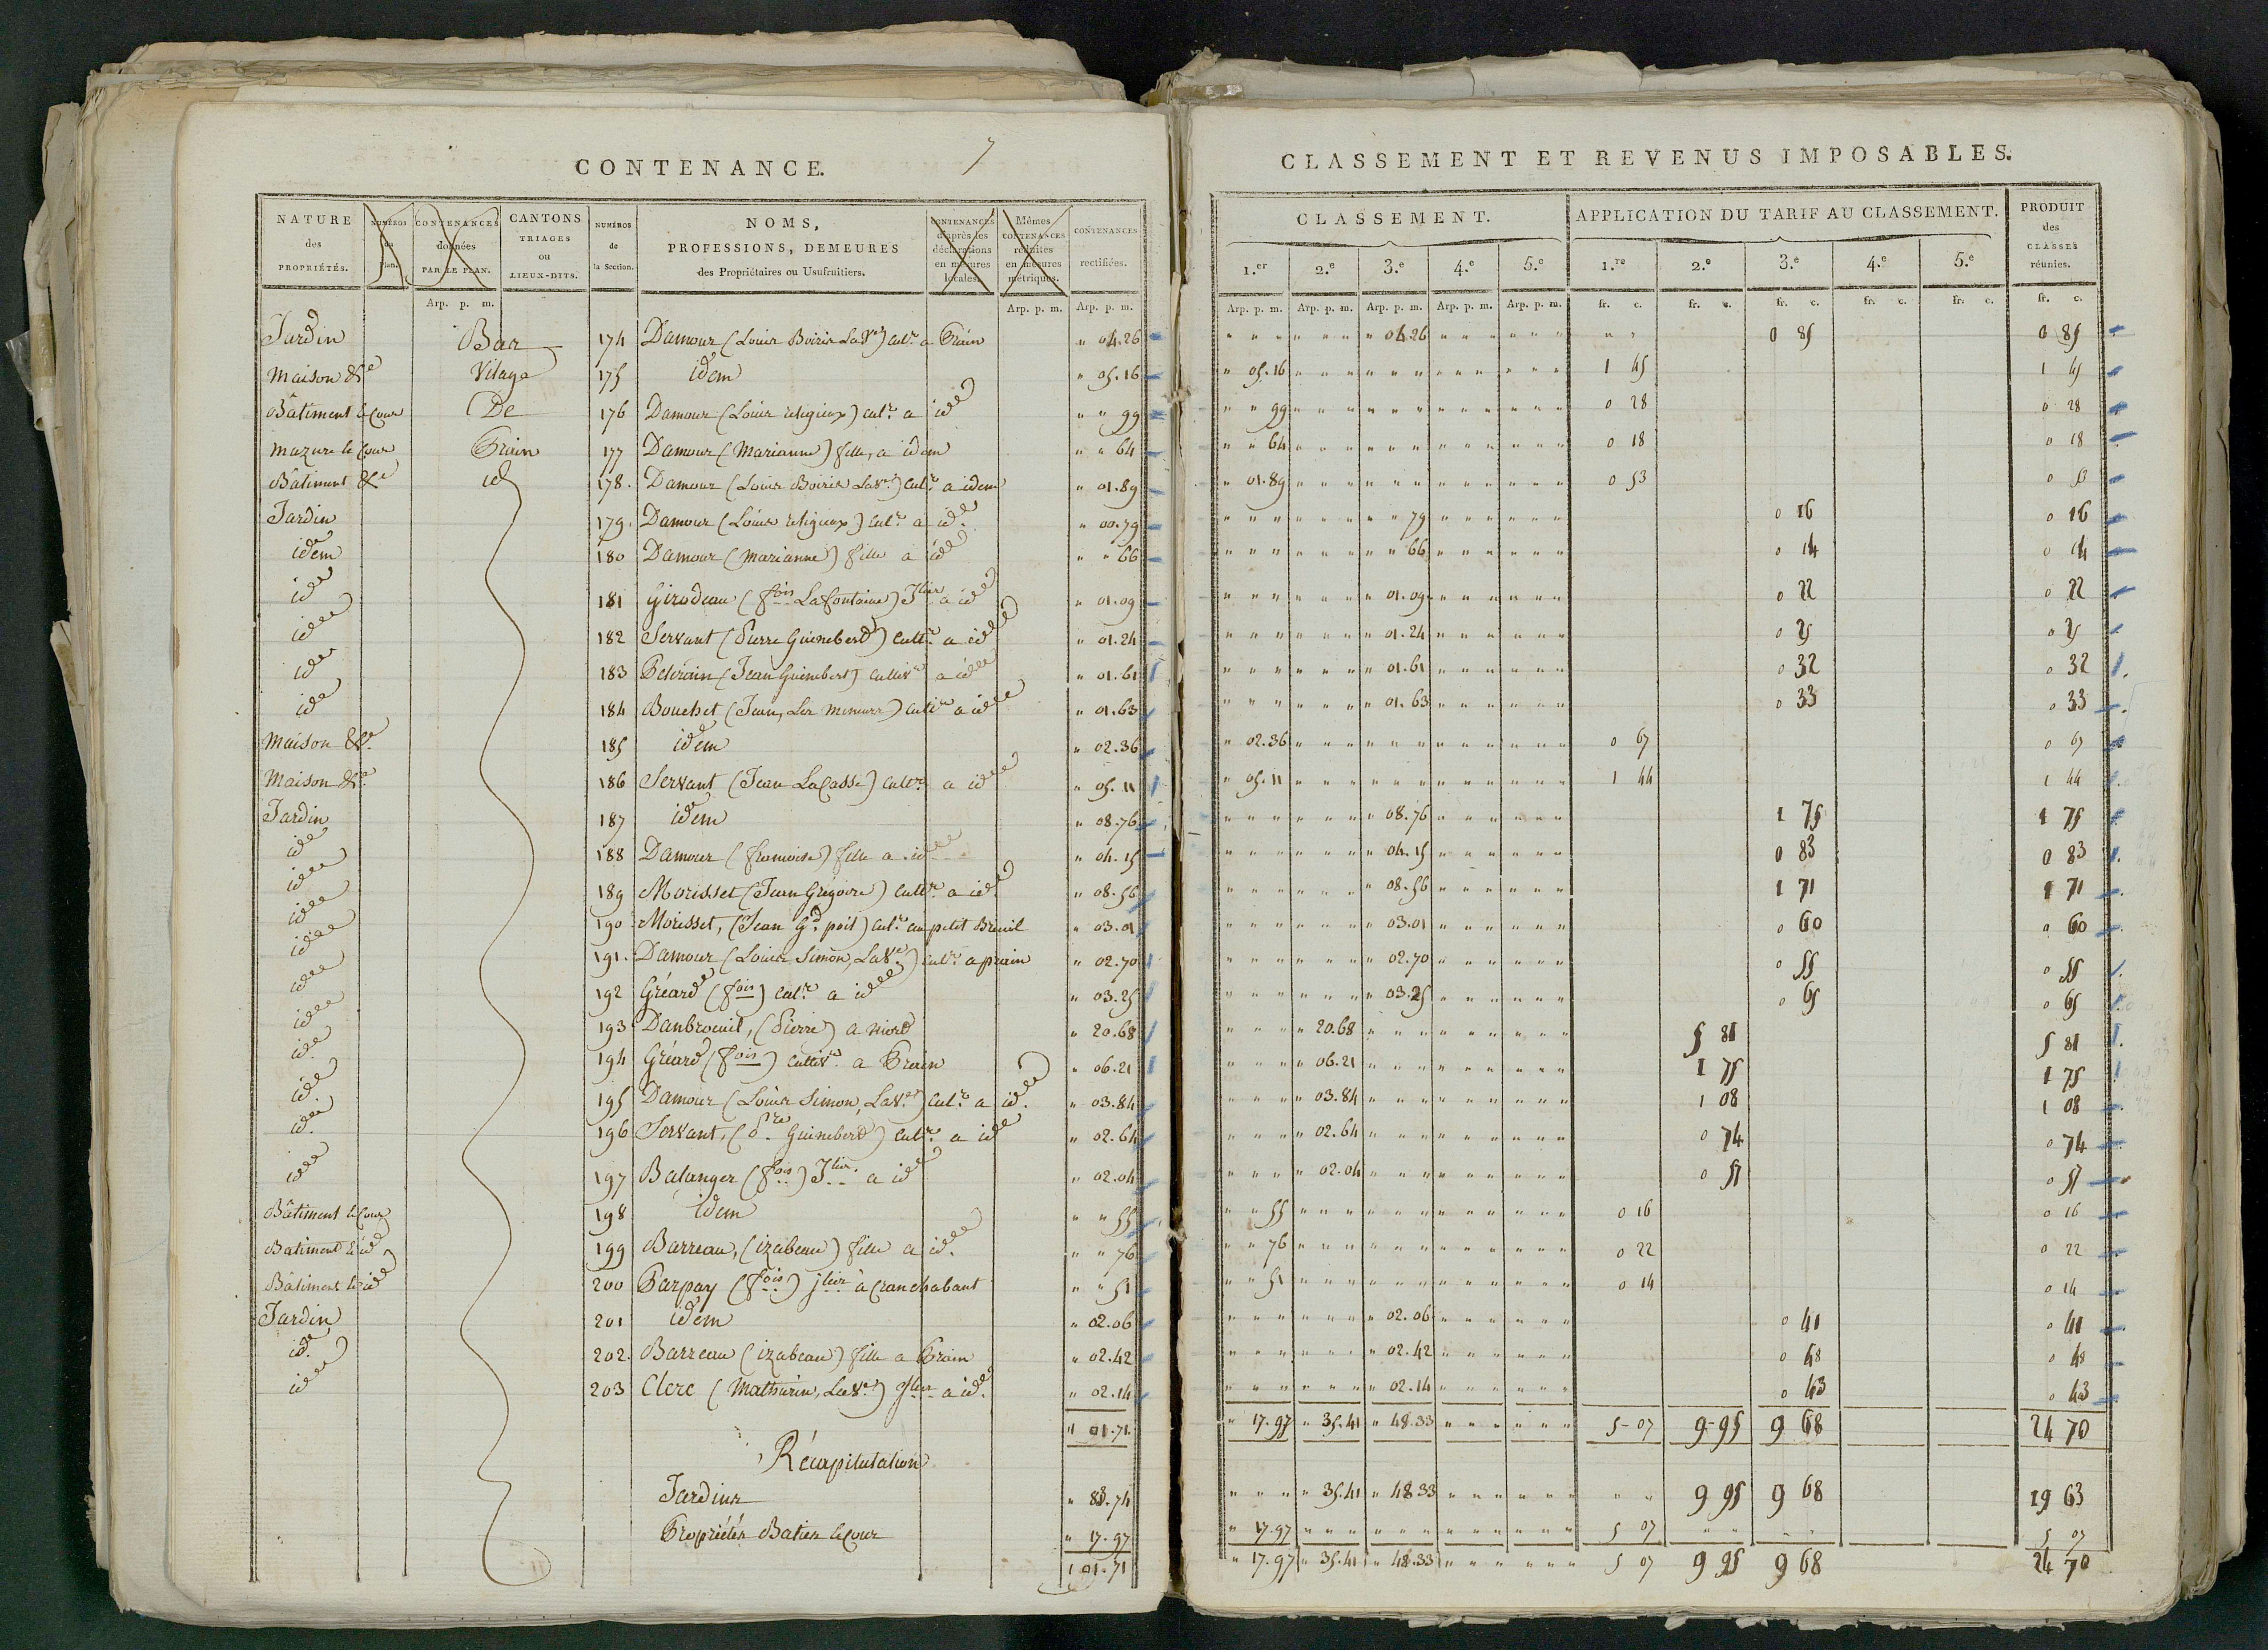 CONTENANCE. 7
NATURE des PROPRIÉTÉS. NUMÉROS du Plan. CONTENANCES données PAR LE PLAN. CANTONS TRIAGES ou LIEUX-DITS. NUMÉROS de la Section. NOMS, PROFESSIONS, DEMEURES des Propriétaires ou Usufruitiers. CONTENANCES d'après les déclarations en mesures locales. Mêmes CONTENANCES réduites en mesures métriques. CONTENANCES rectifiées.
Arp. p. m. Arp. p. m. Arp. p. m.
Jardin Bas 174 Damour (Louis Boiris La Ve) cultr a Prin " 04.26
Maison &c Vilage 175 idem " 05.16
Bâtiment & Cour De 176 Damour (Louis religieux) cultr a id " " 99
Mazure & Cour Prin 177 Damour (Marianne) fille, a idem " " 64
Bâtiment &c id 178. Damour (Louis Boiris La Ve) cultr a idem " 01.89
Jardin 179. Damour (Louis religieux) cultr a id " 00.79
idem 180 Damour (Marianne) fille a id " " 66
id 181 Girodeau (fois Lafontaine) Jlier a id " 01.09
id 182 Servant (Pierre Guinebert) cultr a id " 01.24
id 183 (Jean Guinebert) cultivr a id " 01.61
id 184 Bouchet (Jean, Les Mineurs) cultr a id " 01.63
Maison &c 185 idem " 02.36
Maison &c 186 Servant (Jean LaCasse) cultr a id " 05.11
Jardin 187 idem " 08.76
id 188 Damour (francoise) fille a id " 04.15
id 189 Morisset (Jean Grégoire) cultr a id. " 08.56
id 190 Morisset, (Jean Gd poit) cultr au petit Breuil " 03.01
id 191. Damour (Louis Simon, La Ve) cultr a prin " 02.70
id 192 Gréard (fois) cultr a id " 03.25
id 193 Danbreuil, (Pierre) a niord " 20.68
id. 194 Gréard (fois) cultivr a Prin " 06.21
id. 195 Damour (Louis Simon, La Ve) cultr a id. " 03.84
id. 196 Servant, (Pre Guinebert) cultr a id " 02.64
id 197 Balanger (fois) Jlier a id " 02.04
Bâtiment & Cour 198 idem " " 55
Batiment & id 199 Barreau, (izabeau) fille a id. " " 76
Bâtiment & id 200 Parpay (fois) jlier à Cranchabant " " 51
Jardin 201 idem " 02.06
id. 202. Barreau (izabeau) fille a Prin " 02.42
id 203 Clerc (Mathurin, La Ve) Jlier a id. " 02.14
1 01.71
Récapitulation
Jardins " 83.74
Propriétés Baties & Cour " 17.97
1 01.71
CLASSEMENT ET REVENUS IMPOSABLES.
CLASSEMENT. APPLICATION DU TARIF AU CLASSEMENT. PRODUIT des CLASSES réunies.
1.er 2.e 3.e 4.e 5.e 1.re 2.e 3.e 4.e 5.e
Arp. p. m. Arp. p. m. Arp. p. m. Arp. p. m. Arp. p. m. fr. c. fr. c. fr. c. fr. c. fr. c. fr. c.
" 04.26 0 85 0 85
" 05.16 1 45 1 45
" " 99 0 28 0 28
" " 64 0 18 0 18
" 01.89 0 53 0 53
" " 79 0 16 0 16
" " 66 0 14 0 14
" 01.09 0 22 0 22
" 01.24 0 25 0 25
" 01.61 0 32 0 32
" 01.63 0 33 0 33
" 02.36 0 67 0 67
" 05.11 1 44 1 44
" 08.76 1 75 1 75
" 04.15 0 83 0 83
" 08.56 1 71 1 71
" 03.01 0 60 0 60
" 02.70 0 55 0 55
" 03.25 0 65 0 65
" 20.68 5 81 5 81
" 06.21 1 75 1 75
" 03.84 1 08 1 08
" 02.64 0 74 0 74
" 02.04 0 57 0 57
" " 55 0 16 0 16
" " 76 0 22 0 22
" " 51 0 14 0 14
" 02.06 0 41 0 41
" 02.42 0 48 0 48
" 02.14 0 43 0 43
" 17.97 " 35.41 " 48.33 5-07 9-95 9 68 24 70
" 35.41 " 48.33 9 95 9 68 19 63
" 17.97 5 07 5 07
" 17.97 " 35.41 " 48.33 5 07 9 95 9 68 24 70